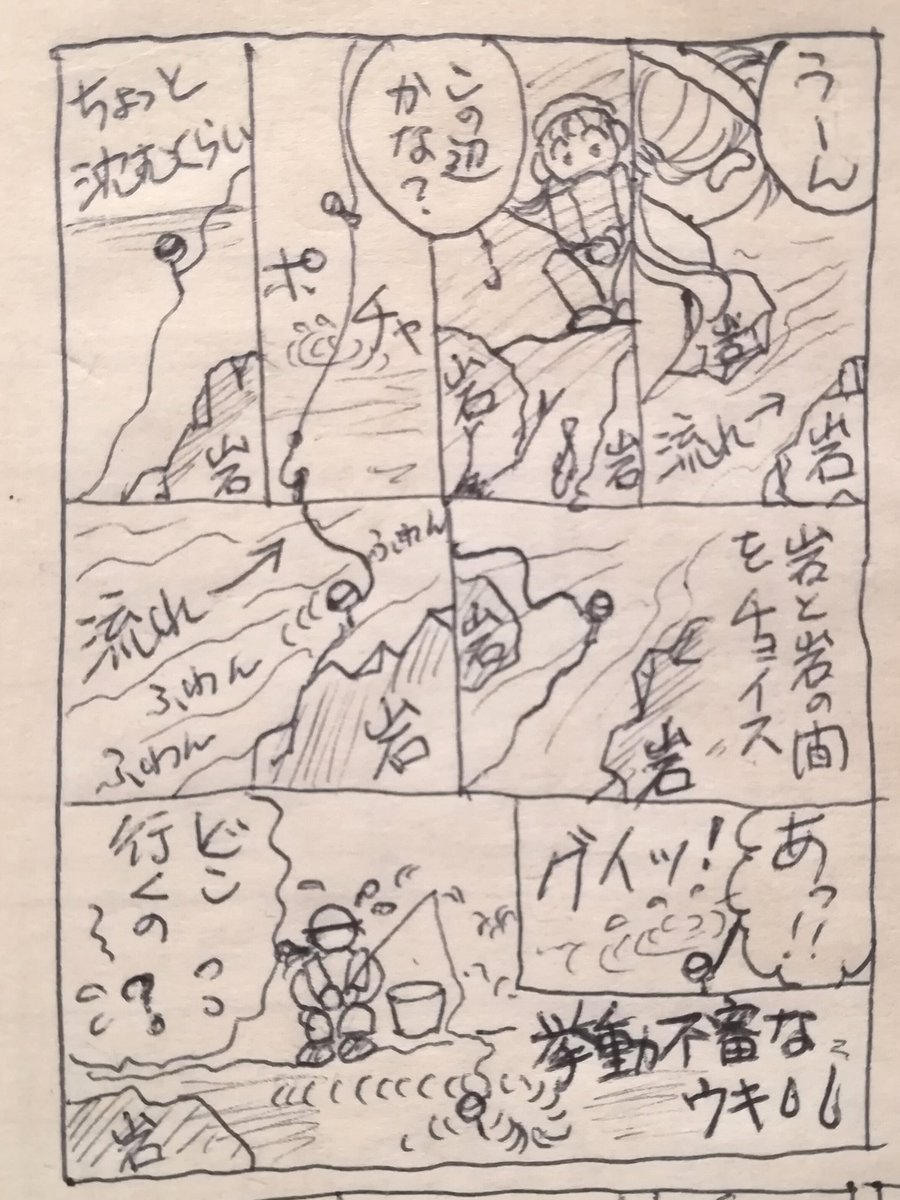 うーん
岩
流れ
岩
この辺
かな?
岩
岩
ポ
チャ
ちょっと
沈むくらい
岩
岩と岩の間
をチョイス
岩
岩
ふわん
流れ
ふわん
ふわん
岩
あっ!!
グイッ!
挙動不審な
ウキ
どこ
行くの
〜?
岩